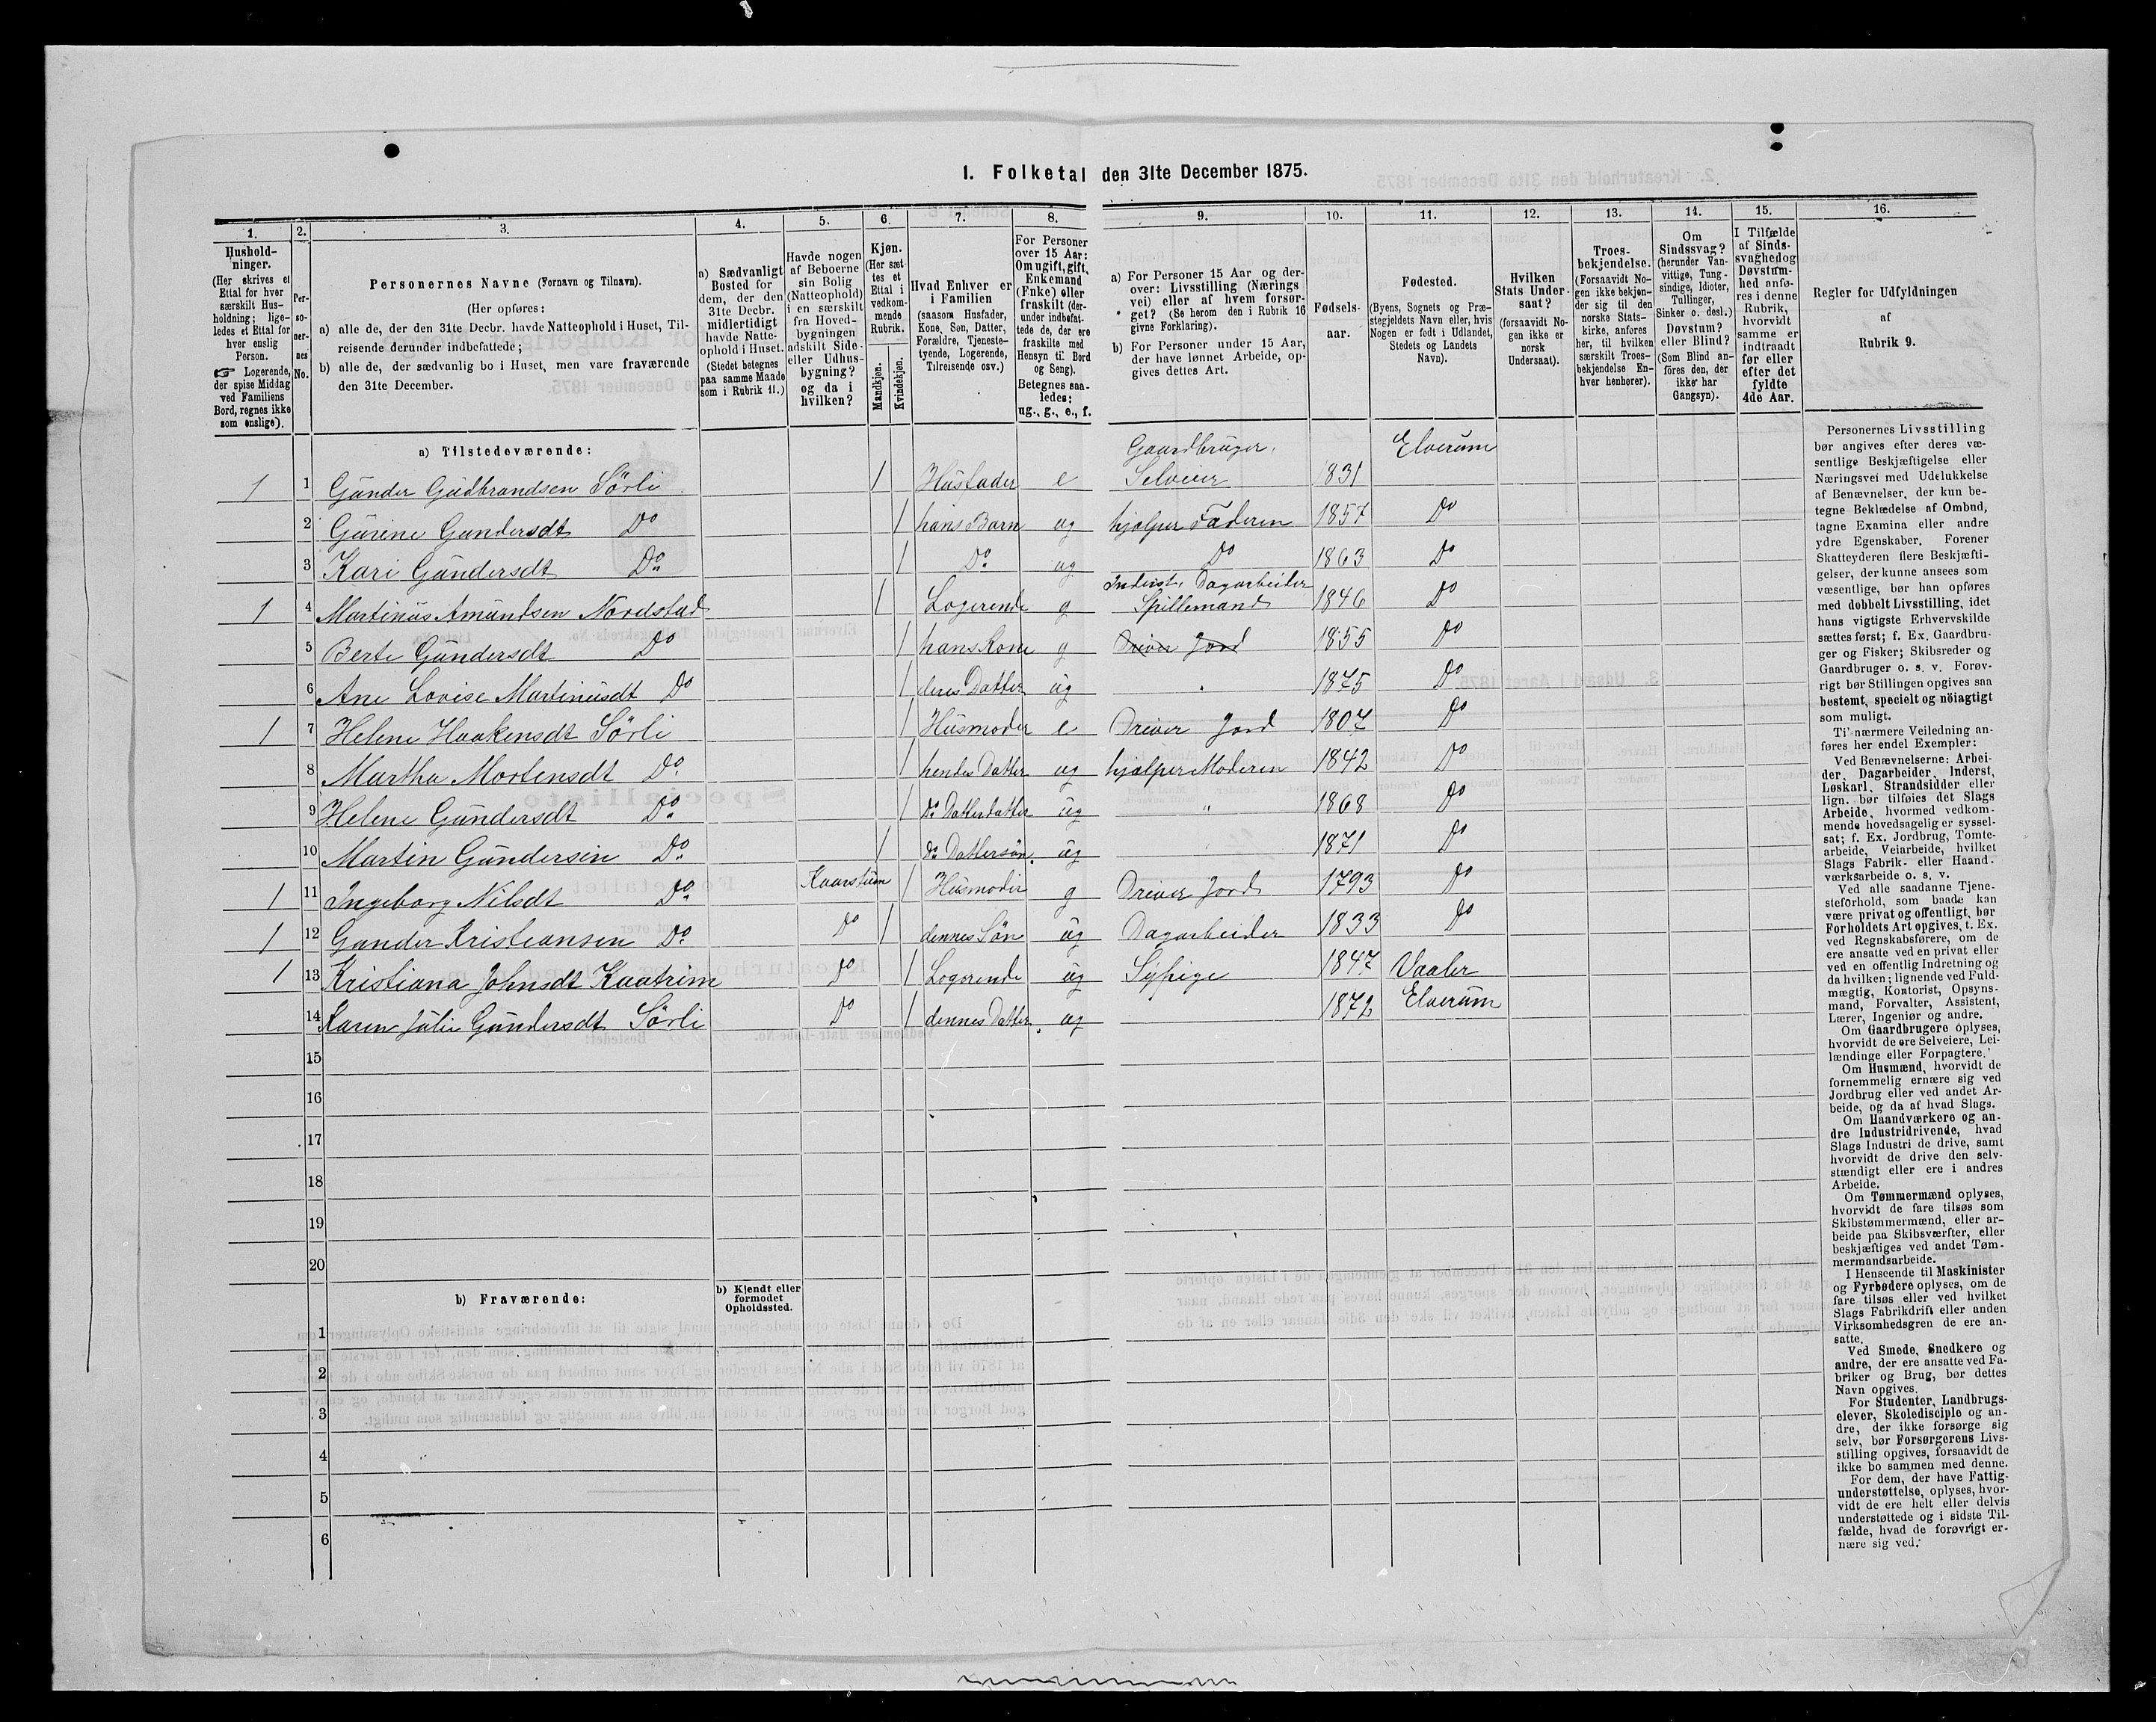 1. Folketal den 31te December 1875.
1. 2. 3. 4. 5. 6. 7. 8. 9. 10. 11. 12. 13. 14. 15. 16.
Hushold-
ninger.
(Her skrives et
Ettal for hver
særskilt Hus-
holdning; lige-
ledes et Ettal for
hver enslig
Person.
☞ Logerende,
der spise Middag
ved Familiens
Bord, regnes ikke
som enslige).
Per-
so-
ner-
nes
No.
Personernes Navne (Fornavn og Tilnavn).
(Her opføres:
a) alle de, der den 31te Decbr. havde Natteophold i Huset, Til-
reisende derunder indbefattede;
b) alle de, der sædvanlig bo i Huset, men vare fraværende
den 31te December.
a) Sædvanligt
Bosted for
dem, der den
31te Decbr.
midlertidigt
havde Natte-
ophold i Huset.
(Stedet betegnes
paa samme Maade
som i Rubrik 11.)
Havde nogen
af Beboerne
sin Bolig
(Natteophold)
i en særskilt
fra Hoved-
bygningen
adskilt Side-
eller Udhus-
bygning?
og da i
hvilken?
Kjøn.
(Her sæt-
tes et
Ettal i
vedkom-
mende
Rubrik.
Mandkjøn.
Kvindekjøn.
Hvad Enhver er
i Familien
(saasom Husfader,
Kone, Søn, Datter,
Forældre, Tjeneste-
tyende, Logerende,
Tilreisende osv.)
For Personer
over 15 Aar:
Om ugift, gift,
Enkemand
(Enke) eller
fraskilt (der-
under indbefat-
tede de, der ere
fraskilte med
Hensyn til Bord
og Seng).
Betegnes saa-
ledes:
ug., g., e., f.
a) For Personer 15 Aar og der-
over: Livsstilling (Nærings
vei) eller af hvem forsør-
get? (Se herom den i Rubrik 16
givne Forklaring).
b) For Personer under 15 Aar,
der have lønnet Arbeide, op-
gives dettes Art.
Fødsels-
aar.
Fødested.
(Byens, Sognets og Præ-
stegjeldets Navn eller, hvis
Nogen er født i Udlandet,
Stedets og Landets
Navn).
Hvilken
Stats Under-
saat?
(forsaavidt No-
gen ikke er
norsk
Undersaat).
Troes-
bekjendelse.
(Forsaavidt No-
gen ikke bekjen-
der sig til den
norske Stats-
kirke, anføres
her, til hvilken
særskilt Troes-
bekjendelse En-
hver henhører).
Om
Sindssvag?
(herunder Van-
vittige, Tung-
sindige, Idioter,
Tullinger,
Sinker o. desl.)
Døvstum?
eller Blind?
(Som Blind an-
føres den, der
ikke har
Gangsyn).
I Tilfælde
af Sinds-
svaghed og
Døvstum-
hed anfø-
res i denne
Rubrik,
hvorvidt
samme er
indtraadt
før eller
efter det
fyldte
4de Aar.
Regler for Udfyldningen
af
Rubrik 9.
a) Tilstedeværende:
1 1 Gunder Gudbrandsen Sörli 1 Husfader e Gaardbruger, Selveier 1831 Elverum
2 Gurine Gundersdt Do 1 hans Barn ug hjælper Faderen 1857 Do
3 Kari Gundersdt Do 1 Do ug Do 1863 Do
1 4 Martinus Amundsen Nordstad 1 Logerende g Inderst, Dagarbeider Spillemand 1846 Do
5 Berte Gundersdt Do 1 hans Kone g Driver Jord 1855 Do
6 Ane Lovise Martinusdt Do 1 deres Datter ug 1875 Do
1 7 Helene Haakensdt Sörli 1 Husmoder e Driver Jord 1807 Do
8 Martha Mortensdt Do 1 hendes Datter ug hjælper Moderen 1842 Do
9 Helene Gundersdt Do 1 Do Datterdatter ug " 1868 Do
10 Martin Gundersen Do 1 Do Dattersøn ug 1871 Do
1 11 Ingeborg Nilsdt Do 1 Husmoder g Driver Jord 1793 Do
1 12 Gunder Kristiansen Do Do 1 dennes Søn ug Dagarbeider 1833 Do
1 13 Kristiana Johnsdt Do 1 Logerende ug Sypige 1847 Vaaler
14 Karen Julie Gundersdt Sörli Do 1 dennes Datter ug 1872 Elverum
15
16
17
18
19
20
b) Fraværende:
b) Kjendt eller
formodet
Opholdssted.
1
2
3
4
5
6
Personernes Livsstilling
bør angives efter deres væ-
sentlige Beskjæftigelse eller
Næringsvei med Udelukkelse
af Benævnelser, der kun be-
tegne Beklædelse af Ombud,
tagne Examina eller andre
ydre Egenskaber. Forener
Skatteyderen flere Beskjæfti-
gelser, der kunne ansees som
væsentlige, bør han opføres
med dobbelt Livsstilling, idet
hans vigtigste Erhvervskilde
sættes først; f. Ex. Gaardbru-
ger og Fisker; Skibsreder og
Gaardbruger o. s. v. Forøv-
rigt bør Stillingen opgives saa
bestemt, specielt og nöiagtigt
som muligt.
Til nærmere Veiledning an-
føres her endel Exempler:
Ved Benævnelserne: Arbei-
der, Dagarbeider, Inderst,
Løskarl, Strandsidder eller
lign. bør tilføies det Slags
Arbeide, hvormed vedkom-
mende hovedsagelig er syssel-
sat; f. Ex. Jordbrug, Tomte-
arbeide, Veiarbeide, hvilket
Slags Fabrik- eller Haand-
værksarbeide o. s. v.
Ved alle saadanne Tjene-
steforhold, som baade kan
være privat og offentligt, bør
Forholdets Art opgives, t. Ex.
ved Regnskabsførere, om de
ere ansatte ved en privat eller
ved en offentlig Indretning og
da hvilken; lignende ved Fuld-
mægtig, Kontorist, Opsyns-
mand, Forvalter, Assistent,
Lærer, Ingeniør og andre.
Om Gaardbrugere oplyses,
hvorvidt de ere Selveiere, Lei-
lændinge eller Forpagtere.
Om Husmænd, hvorvidt de
fornemmelig ernære sig ved
Jordbrug eller ved andet Ar-
beide, og da af hvad Slags.
Om Haandværkere og an-
dre Industridrivende, hvad
Slags Industri de drive, samt
hvorvidt de drive den selv-
stændigt eller ere i andres
Arbeide.
Om Tømmermænd oplyses,
hvorvidt de fare tilsøs som
Skibstømmermænd, eller ar-
beide paa Skibsværfter, eller
beskjæftiges ved andet Tøm-
mermandsarbeide.
I Henseende til Maskinister
og Fyrbødere oplyses, om de
fare tilsøs eller ved hvilket
Slags Fabrikdrift eller anden
Virksomhedsgren de ere an-
satte.
Ved Smede, Snedkere og
andre, der ere ansatte ved Fa-
briker og Brug, bør dettes
Navn opgives.
For Studenter, Landbrugs-
elever, Skoledisciple og an-
dre, der ikke forsørge sig
selv, bør Forsørgerens Livs-
stilling opgives, forsaavidt de
ikke bo sammen med denne.
For dem, der have Fattig-
understøttelse, oplyses, hvor-
vidt de ere helt eller delvis
understøttede og i sidste Til-
fælde, hvad de forøvrigt er-
nære sig ved.